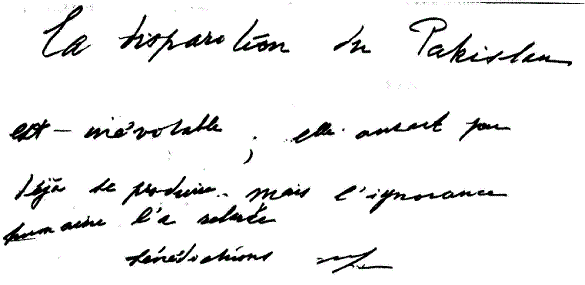 La disparition du Pakistan
est inévitable ; elle aurait pu
déjà se produire - mais l'ignorance
humaine l'a retardée
bénédictions